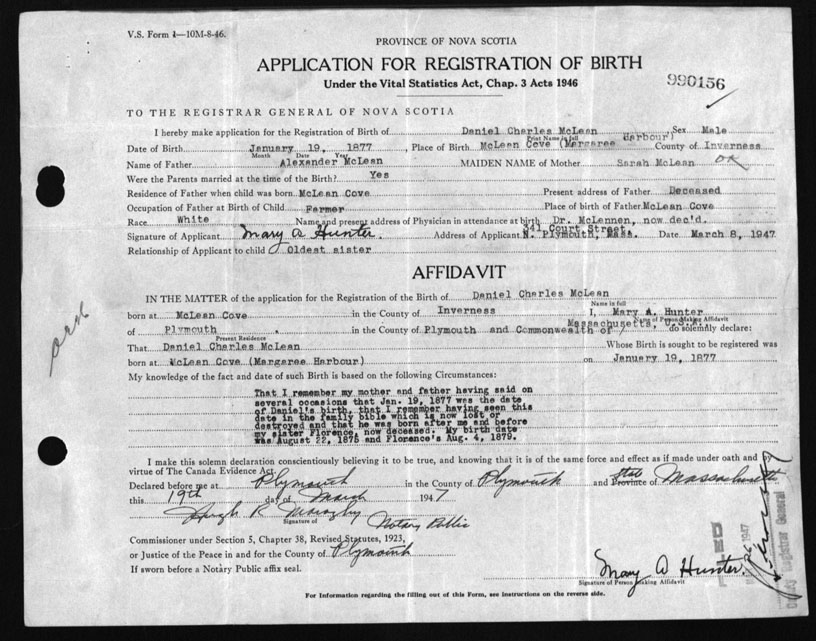 V.S. Form 1—10M-8-46.
PROVINCE OF NOVA SCOTIA
APPLICATION FOR REGISTRATION OF BIRTH
Under the Vital Statistics Act, Chap. 3 Acts 1946
990156
TO THE REGISTRAR GENERAL OF NOVA SCOTIA
I hereby make application for the Registration of Birth of Daniel Charles McLean Sex Male
Print Name in full
Date of Birth January 19, 1877, Place of Birth McLean Cove (Margaree Harbour) County of Inverness
Month Date Year
Name of Father Alexander McLean MAIDEN NAME of Mother Sarah McLean OK
Were the Parents married at the time of the Birth? Yes
Residence of Father when child was born McLean Cove Present address of Father Deceased
Occupation of Father at Birth of Child Farmer Place of birth of Father McLean Cove
Race White Name and present address of Physician in attendance at birth Dr. McLennen, now dec'd.
Signature of Applicant Mary A Hunter. Address of Applicant 341 Court Street, N. Plymouth, Mass. Date March 8, 1947
Relationship of Applicant to child Oldest sister
AFFIDAVIT
IN THE MATTER of the application for the Registration of the Birth of Daniel Charles McLean
Name in full
born at McLean Cove in the County of Inverness I, Mary A. Hunter
Name of Person Making Affidavit
of Plymouth in the County of Plymouth and Commonwealth of Massachusetts, U.S.A. do solemnly declare:
Present Residence
That Daniel Charles McLean Whose Birth is sought to be registered was
born at McLean Cove (Margaree Harbour) on January 19, 1877
My knowledge of the fact and date of such Birth is based on the following Circumstances:
That I remember my mother and father having said on
several occasions that Jan. 19, 1877 was the date
of Daniel's birth, that I remember having seen this
date in the family bible which is now lost or
destroyed and that he was born after me and before
my sister Florence, now deceased. My birth date
was August 22, 1875 and Florence's Aug. 4, 1879.
I make this solemn declaration conscientiously believing it to be true, and knowing that it is of the same force and effect as if made under oath and
virtue of The Canada Evidence Act.
Declared before me at Plymouth in the County of Plymouth and State Province of Massachusetts
this 19th day of March 1947
Hugh R Notary Public
Signature of
Commissioner under Section 5, Chapter 38, Revised Statutes, 1923,
or Justice of the Peace in and for the County of Plymouth
If sworn before a Notary Public affix seal.
Mary A Hunter.
Signature of Person Making Affidavit
For Information regarding the filling out of this Form, see instructions on the reverse side.
Registrar General
1947